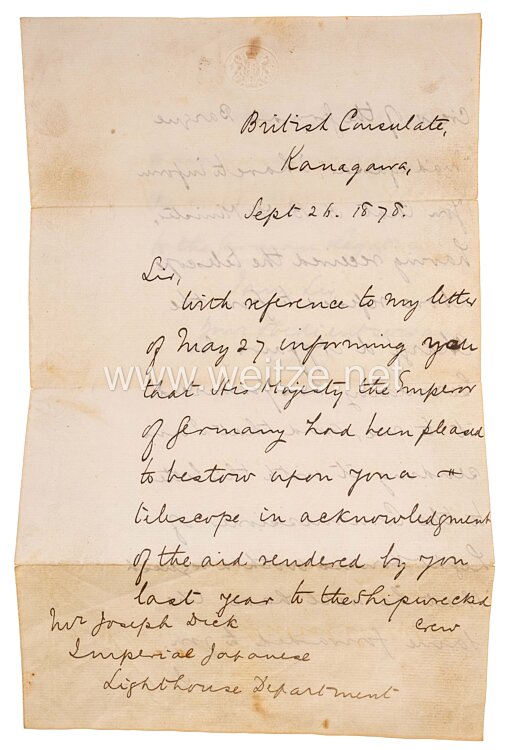 British Consulate,
Kanagawa,
Sept 26. 1878.
Sir,
With reference to my letter
of May 27 informing you
www.weitze.net
that His Majesty the Emperor
of Germany had been pleased
to bestow upon you a
telescope in acknowledgment
of the aid rendered by you
last year to the Shipwrecked
crew
Mr Joseph Dick
Imperial Japanese
Lighthouse Department